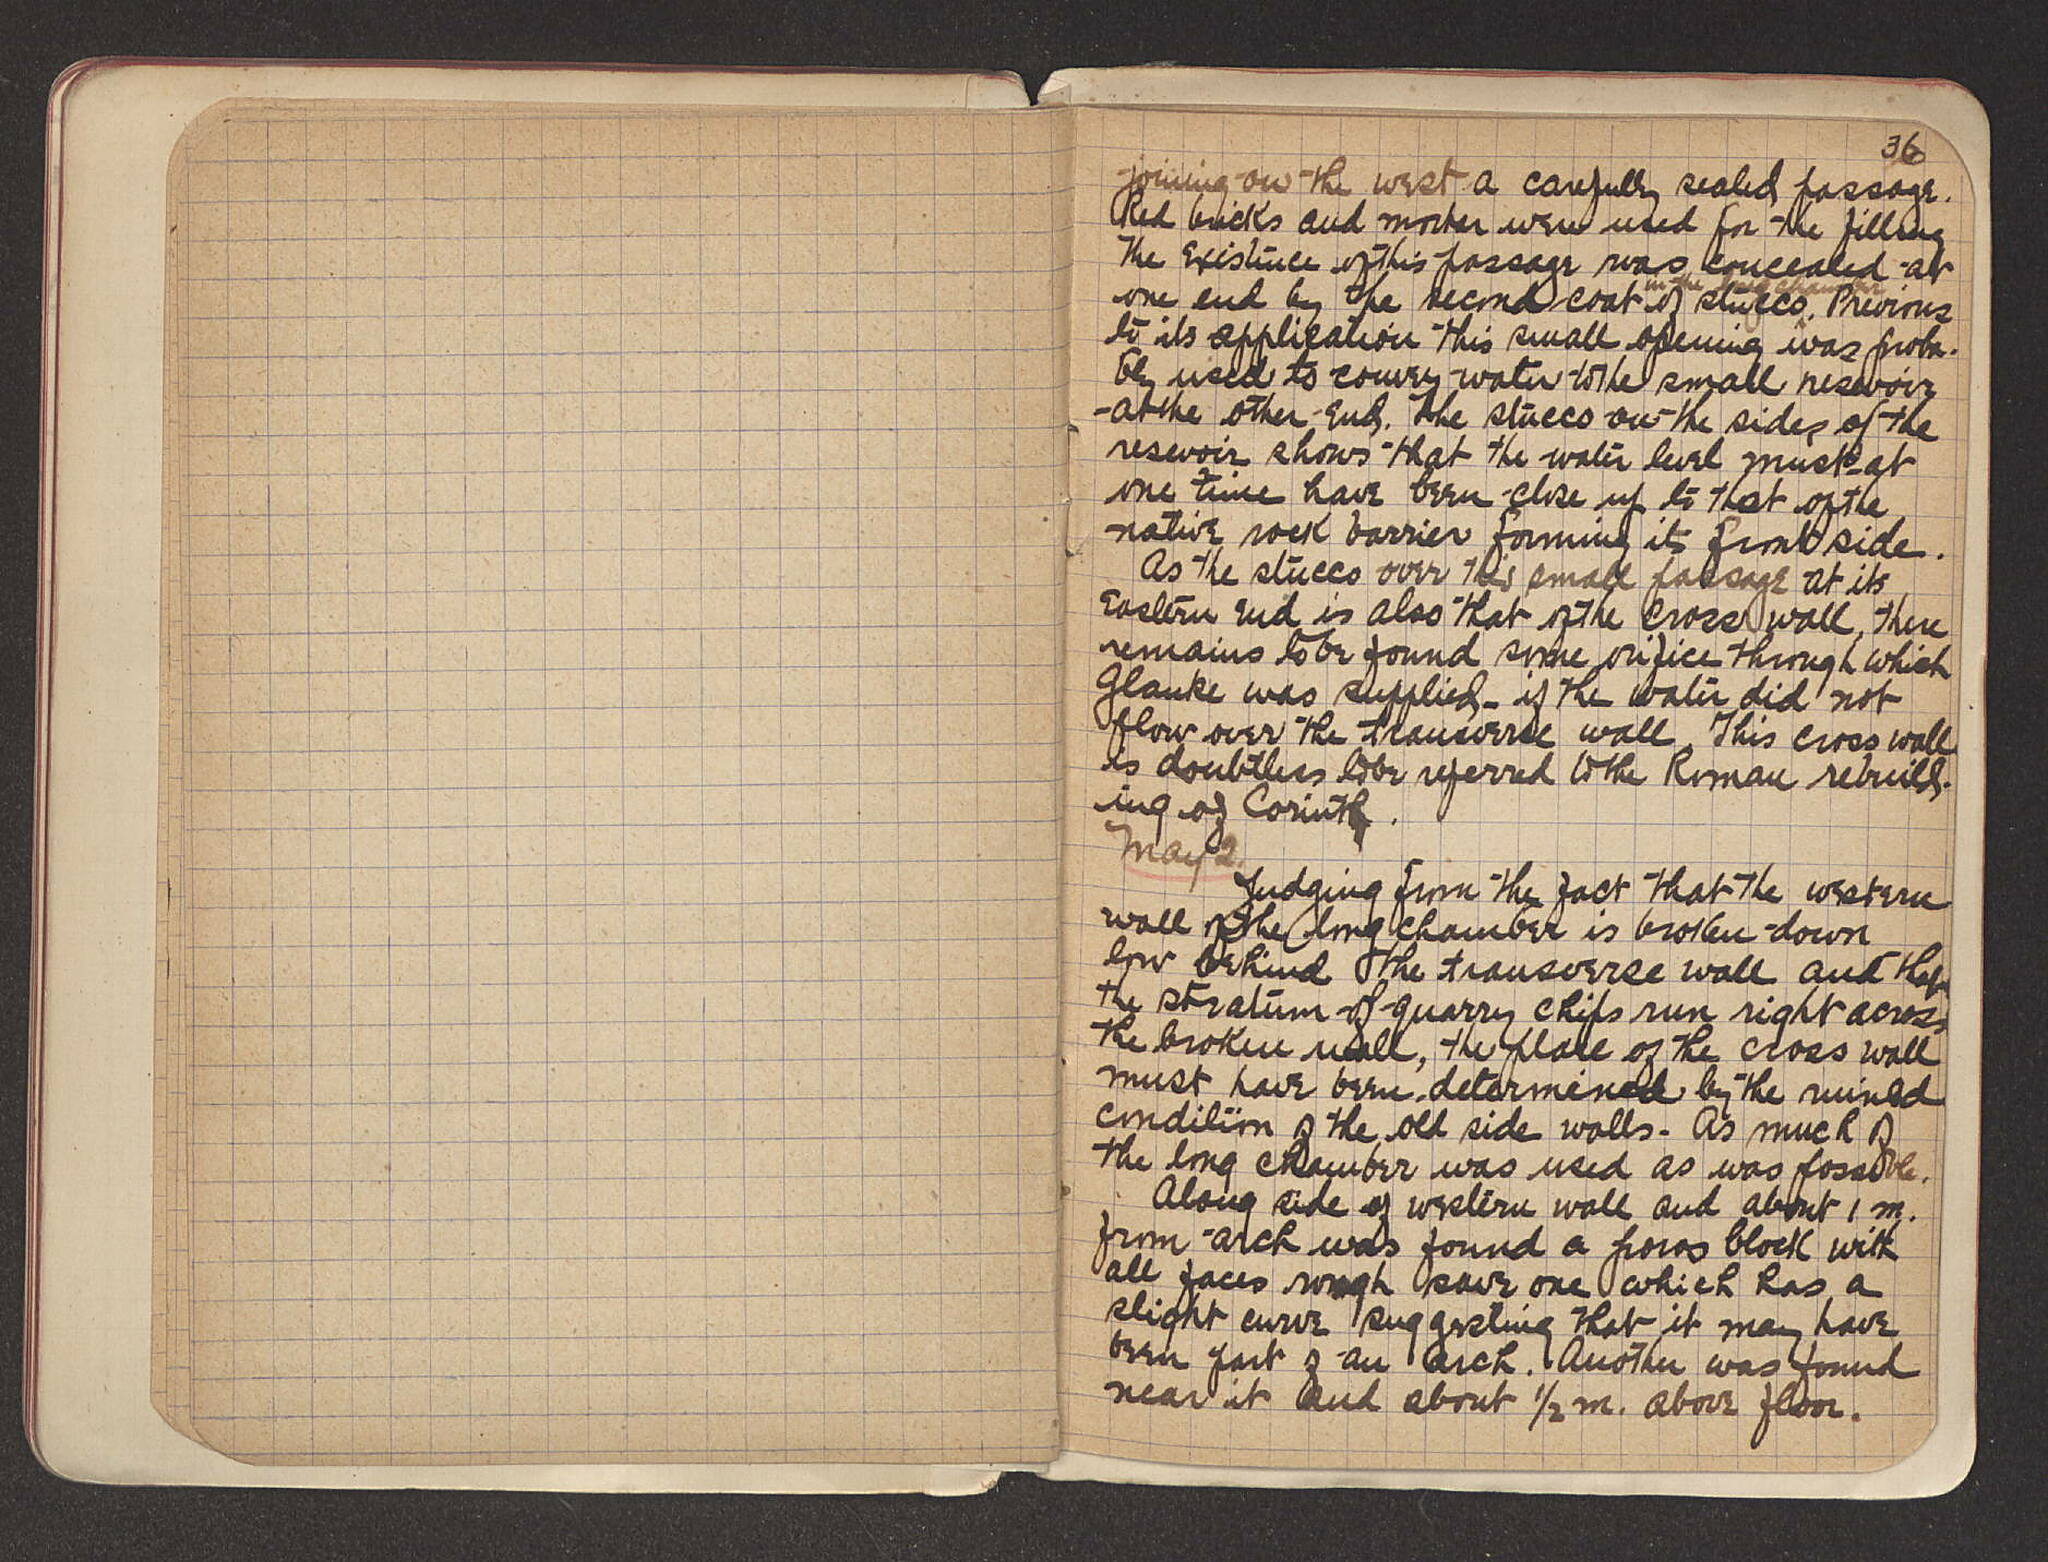 36
joining on the west a carefully sealed passage.
Red bricks and mortar were used for the filling
The existence of this passage was concealed at
in the long chamber
one end by the second coat of stucco. Previous
to its application this small opening was proba-
bly used to convey water to the small resevoir
at the other end. The stucco on the sides of the
resevoir shows that the water level must at
one time have been close up to that of the
native rock barrier forming its front side.
As the stucco over this small passage at its
Eastern end is also that of the cross wall, there
remains to be found some orifice through which
Glauke was supplied - if the water did not
flow over the transverse wall. This cross wall
is doubtless to be referred to the Roman rebuild-
ing of Corinth.
May 2.
Judging from the fact that the western
wall of the long chamber is broken down
low behind the transverse wall and that
the stratum of quarry chips run right across
the broken wall, the place of the cross wall
must have been determined by the ruined
condition of the old side walls - As much of
the long chamber was used as was possible.
Along side of western wall and about 1 m.
from arch was found a poros block with
all faces rough save one which has a
slight curve suggesting that it may have
been part of an arch. Another was found
near it and about 1/2 m. above floor.